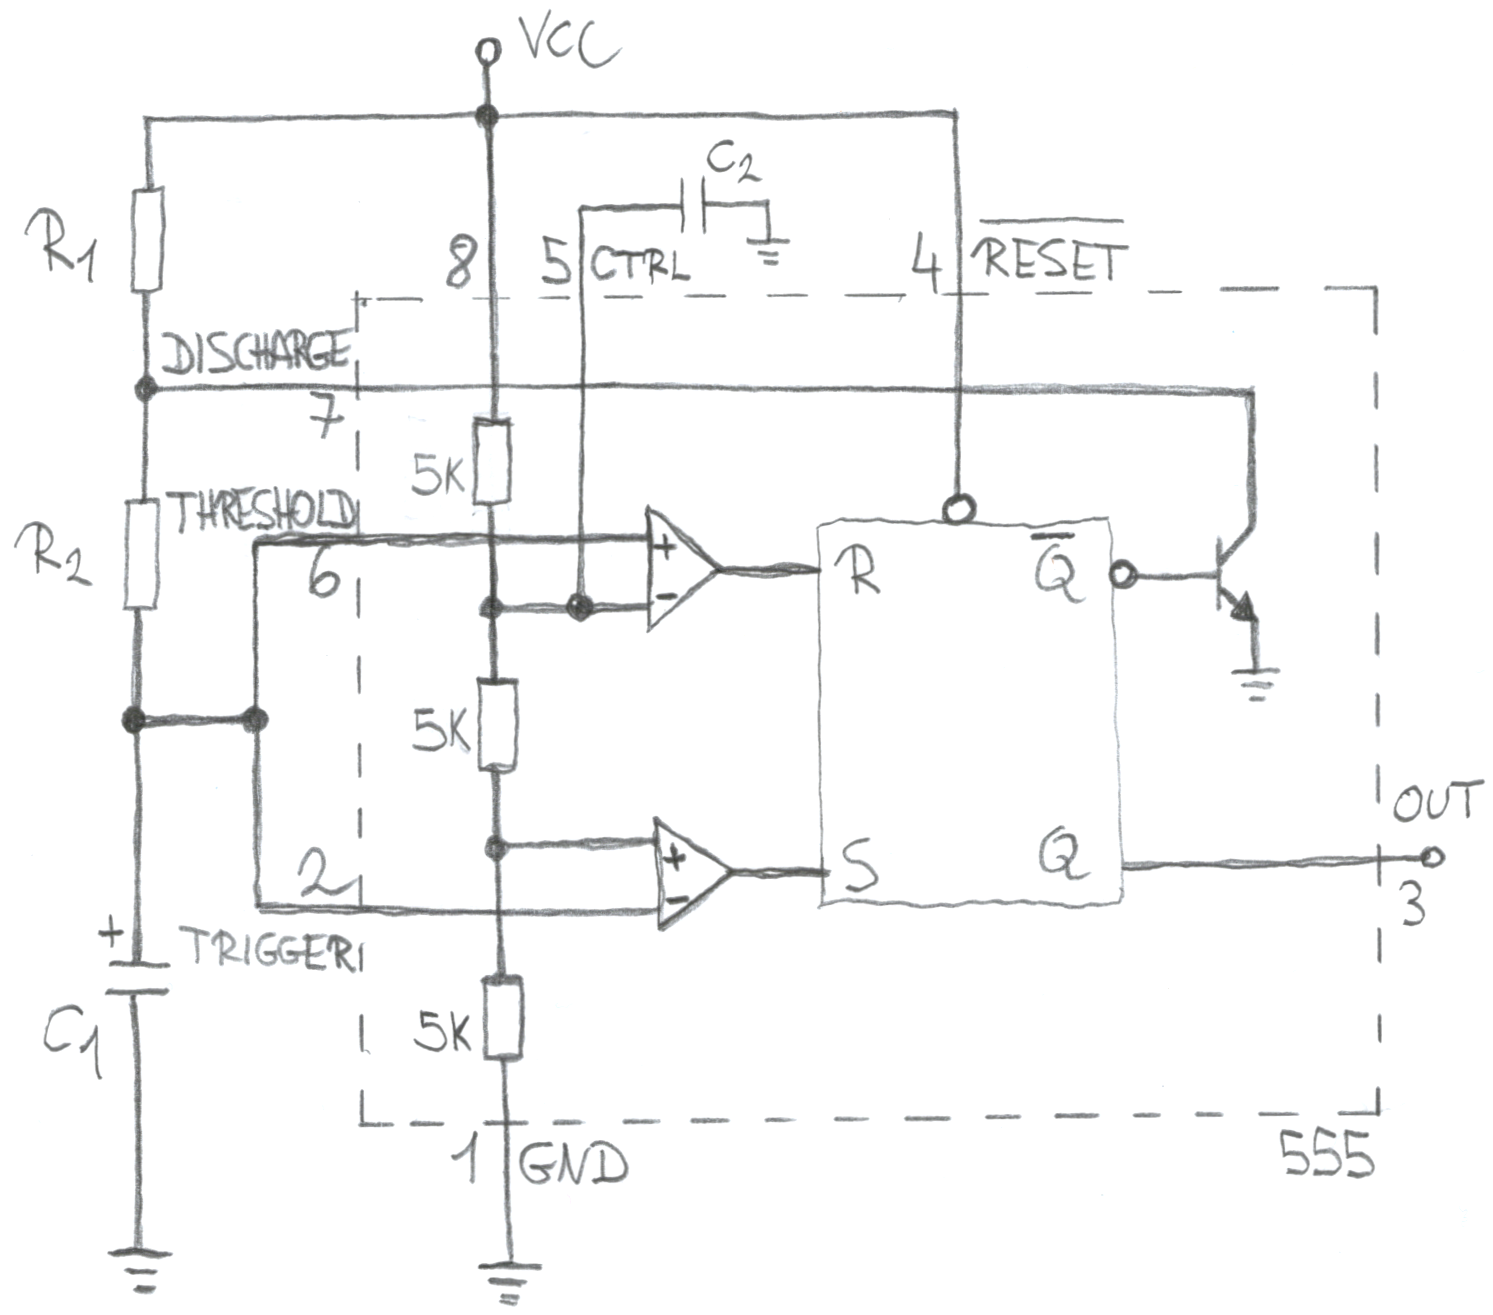 VCC
C2
R1
8
5
CTRL
4
RESET
DISCHARGE
7
5K
THRESHOLD
R2
6
+
-
R
Q
5K
2
+
-
S
Q
OUT
3
+
TRIGGER
C1
5K
1
GND
555